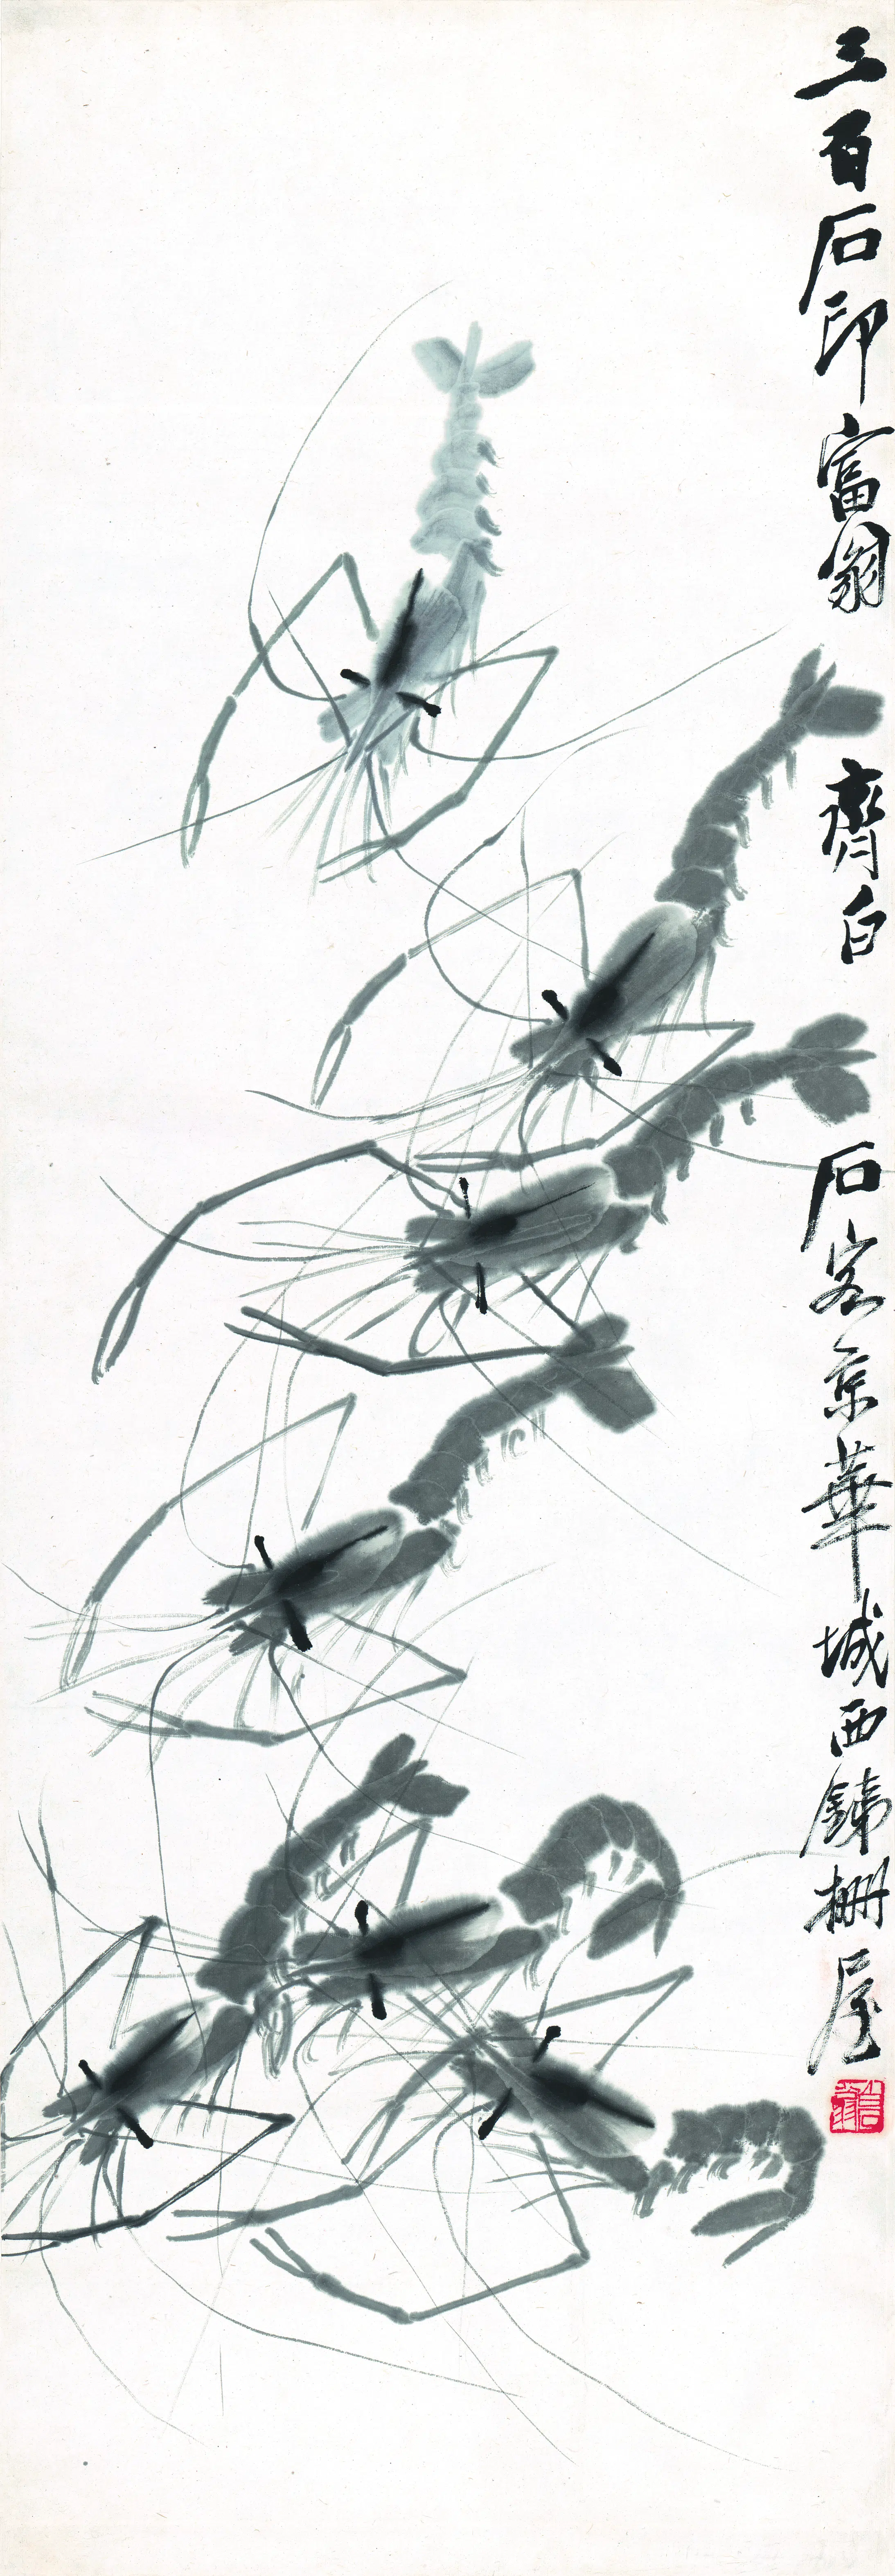 三百石印富翁 齊白石客京華城西鐵栅屋